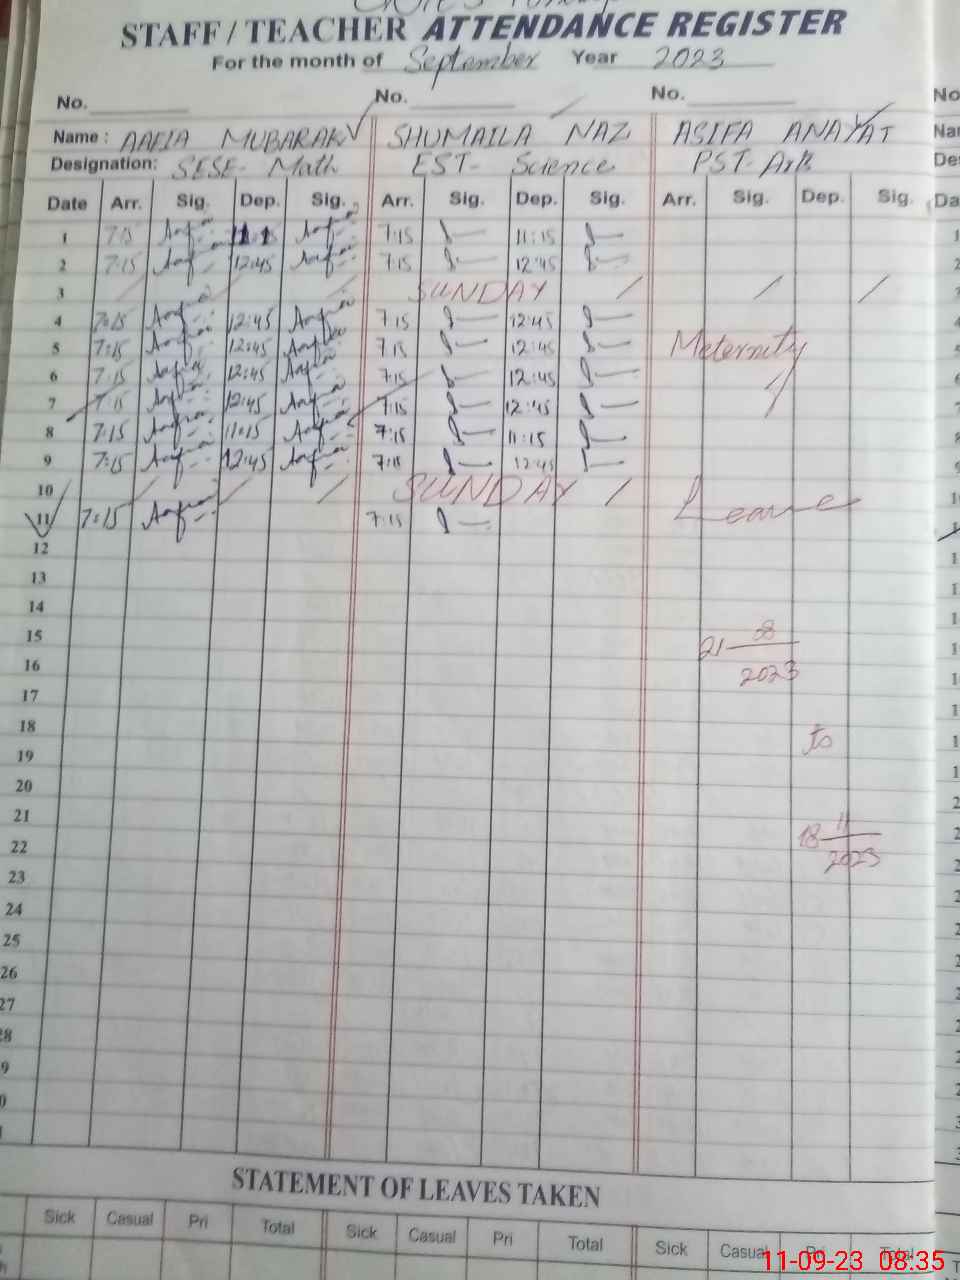 STAFF / TEACHER ATTENDANCE REGISTER
For the month of September Year 2023
No. No. No. No
Name : AAFIA MUBARAK SHUMAILA NAZ ASIFA ANAYAT Nar
Designation: SESE- Math EST- Science PST- Arts Des
Date Arr. Sig. Dep. Sig. Arr. Sig. Dep. Sig. Arr. Sig. Dep. Sig. Da
1 7:15 11:15 7:15 11:15 1
2 7:15 12:45 7:15 12:45 2
3 SUNDAY
4 7:15 12:45 7:15 12:45
5 7:15 12:45 7:15 12:45 Meternity 5
6 7:15 12:45 7:15 12:45 6
7 7:15 12:45 7:15 12:45 7
8 7:15 11:15 7:15 11:15 8
9 7:15 12:45 7:15 12:45 9
10 SUNDAY Leave
11 7:15 7:15
12
13
14
15 21 08
16 2023
17
18 to
19
20
21 18 11
22 2023
23
24
25
26
27
28
9
0
STATEMENT OF LEAVES TAKEN
Sick Casual Pri Total Sick Casual Pri Total Sick Casual Pri Total
11-09-23 08:35